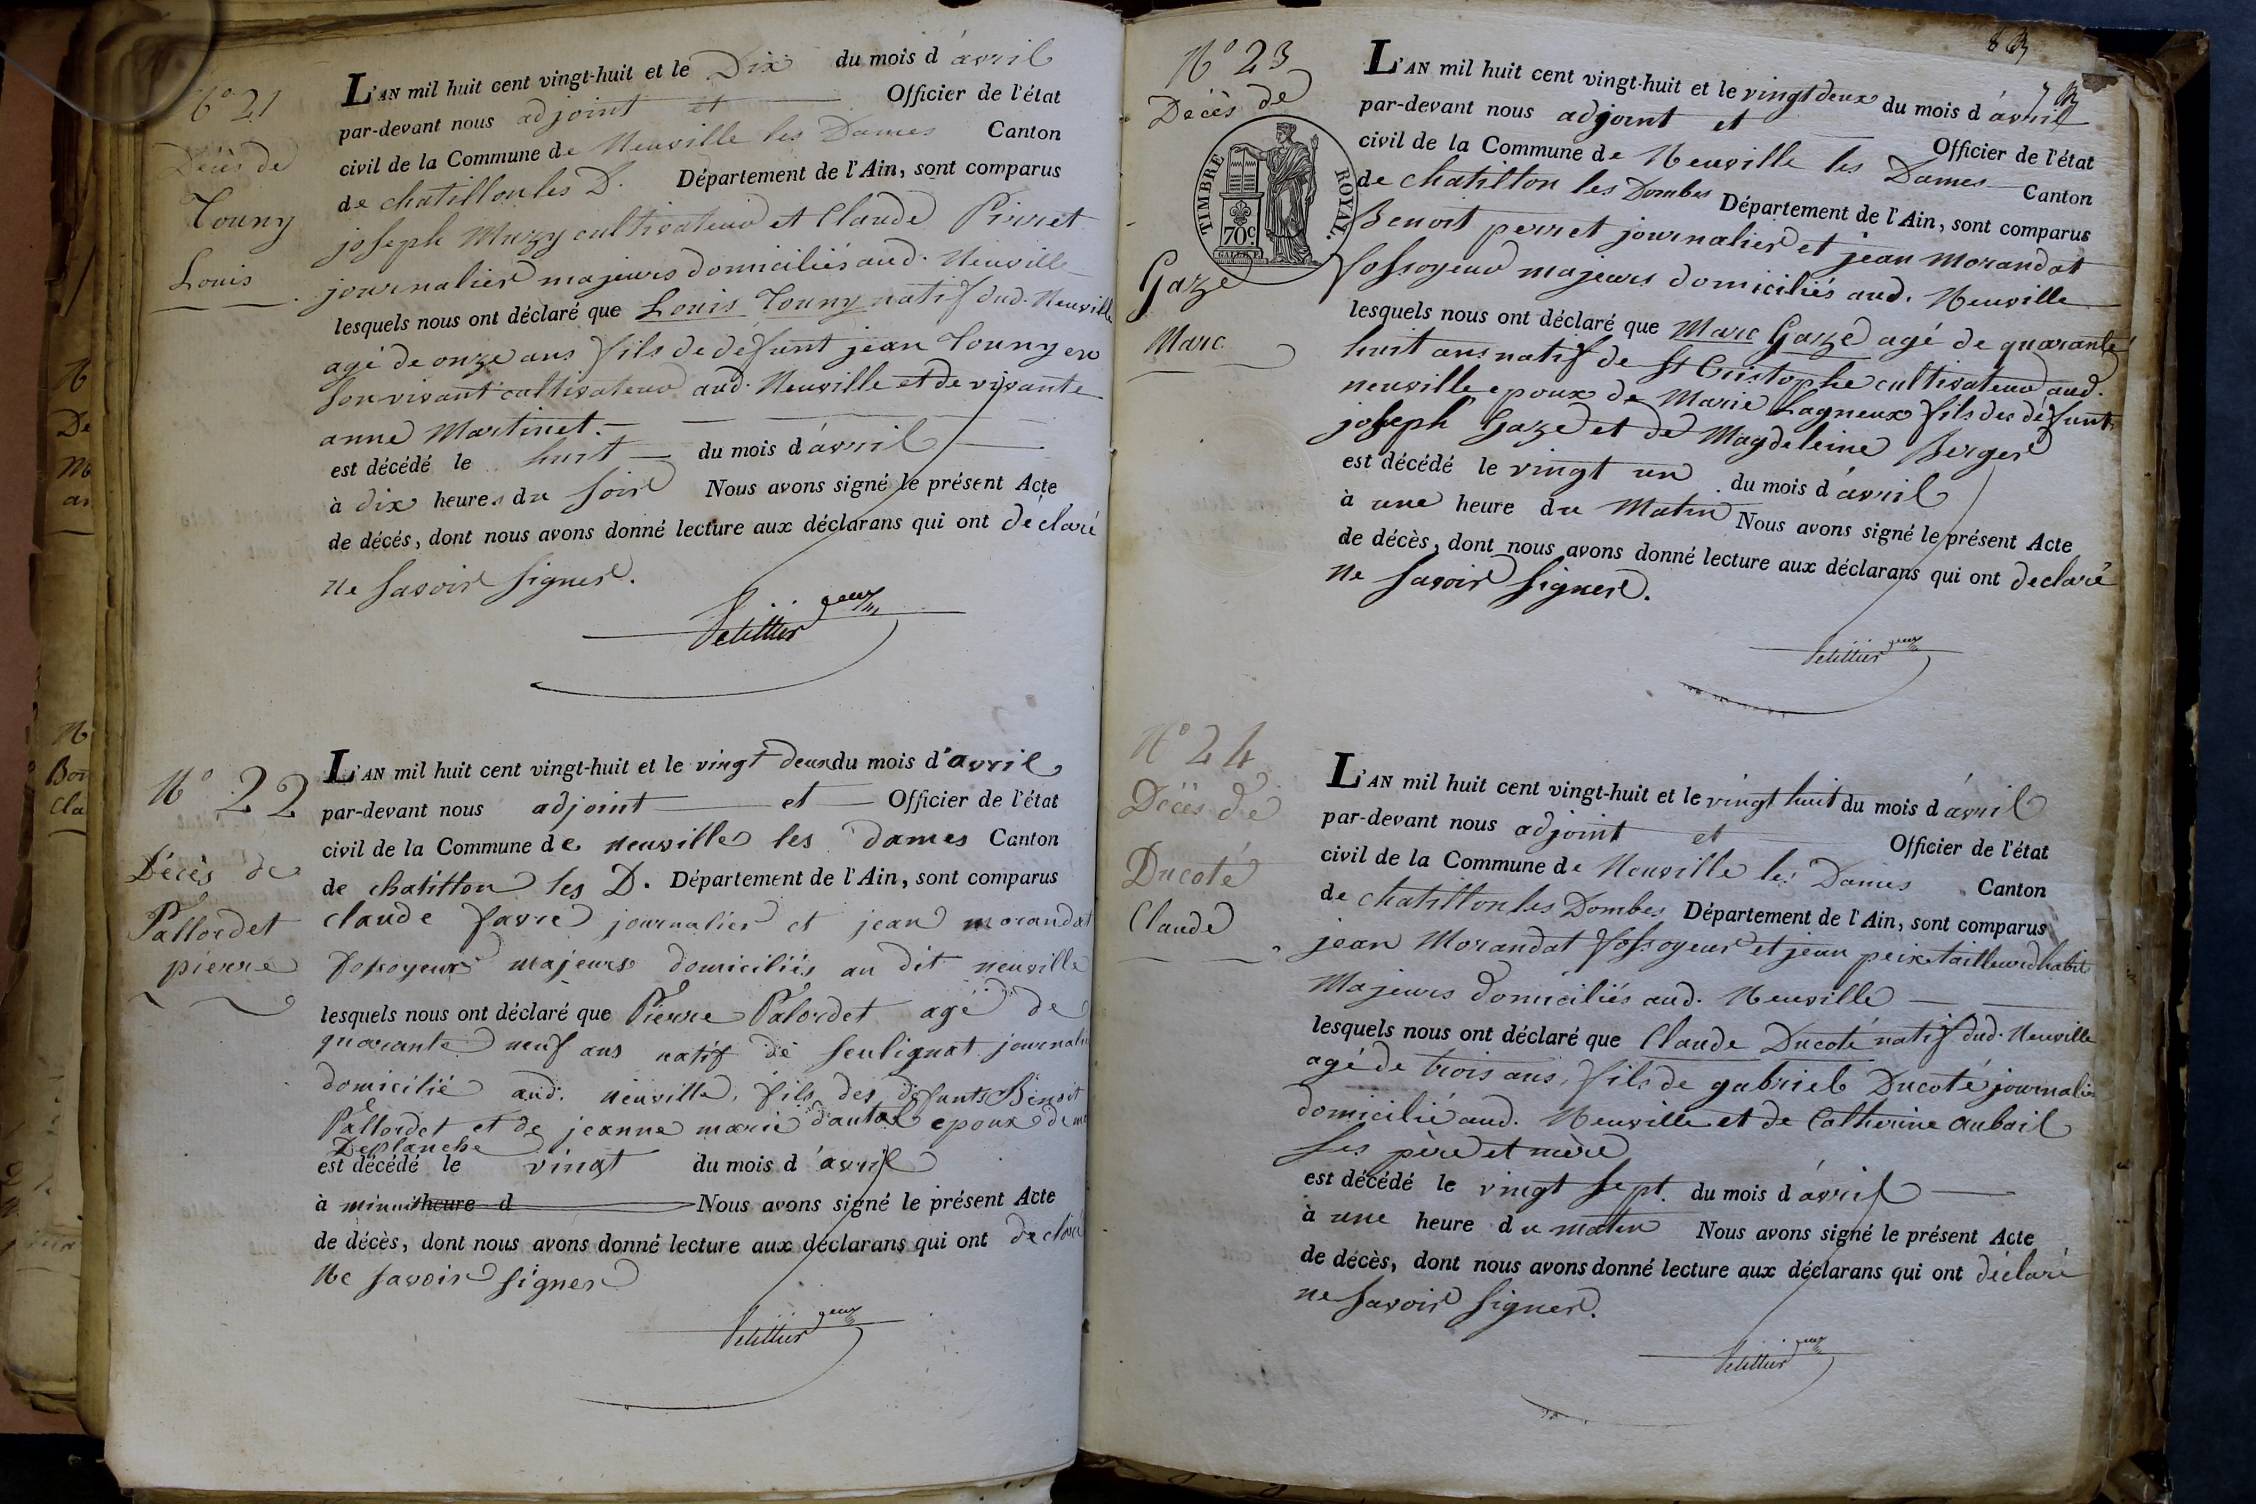 N° 21
Décès de
Touny
Louis
L'AN mil huit cent vingt-huit et le Dix du mois d'avril
par-devant nous adjoint et Officier de l'état
civil de la Commune de Neuville les Dames Canton
de chatillon les D. Département de l'Ain, sont comparus
joseph Muzy cultivateur et Claude Pirret
journalier majeurs domiciliés aud. Neuville
lesquels nous ont déclaré que Louis Touny natif dud. Neuville
agé de onze ans fils de defunt jean Touny en
son vivant cultivateur aud. Neuville et de vivante
anne Martinet.
est décédé le huit du mois d'avril
à dix heures du soir Nous avons signé le présent Acte
de décés, dont nous avons donné lecture aux déclarans qui ont déclaré
ne savoir signer.
N° 22
Décès de
Pallordet
pierre
L'AN mil huit cent vingt-huit et le vingt deux du mois d'avril
par-devant nous adjoint et Officier de l'état
civil de la Commune de neuville les dames Canton
de chatillon les D. Département de l'Ain, sont comparus
claude favre journalier et jean morandat
fossoyeur majeurs domiciliés au dit neuville
lesquels nous ont déclaré que Pierre Palordet agé de
quarante neuf ans natif de seulignat journalier
domicilié aud. neuville, fils des defunts Benoit
Pallordet et de jeanne marie dautal epoux de
Deplanche
est décédé le vingt du mois d'avril
à minuit heure d Nous avons signé le présent Acte
de décès, dont nous avons donné lecture aux déclarans qui ont declaré
Ne savoir signer
N° 23
Décès de
TIMBRE ROYAL.
70c
Gaze
Marc
L'AN mil huit cent vingt-huit et le vingt deux du mois d'avril
par-devant nous adjoint et Officier de l'état
civil de la Commune de Neuville les Dames Canton
de chatillon les Dombes Département de l'Ain, sont comparus
Benoit perret journalier et jean Morandat
fossoyeur majeurs domiciliés aud. Neuville
lesquels nous ont déclaré que Marc Gaze agé de quarante
huit ans natif de St Cristophe cultivateur aud.
neuville epoux de Marie Lagneux fils des défunts
joseph Gaze et de Magdeleine Berger
est décédé le vingt un du mois d'avril
à une heure du Matin Nous avons signé le présent Acte
de décès, dont nous avons donné lecture aux déclarans qui ont declaré
ne savoir signer.
N° 24
Décès de
Ducoté
Claude
L'AN mil huit cent vingt-huit et le vingt huit du mois d'avril
par-devant nous adjoint et Officier de l'état
civil de la Commune de Neuville les Dames Canton
de chatillon les Dombes Département de l'Ain, sont comparus
jean Morandat fossoyeur et jean peix tailleur d'habits
Majeurs domiciliés aud. Neuville
lesquels nous ont déclaré que Claude Ducoté natif dud. Neuville
agé de trois ans, fils de gabriel Ducoté journalier
domicilié aud. Neuville et de Catherine aubail
ses père et mère
est décédé le vingt sept du mois d'avril
à une heure du matin Nous avons signé le présent Acte
de décès, dont nous avons donné lecture aux déclarans qui ont déclaré
ne savoir signer.